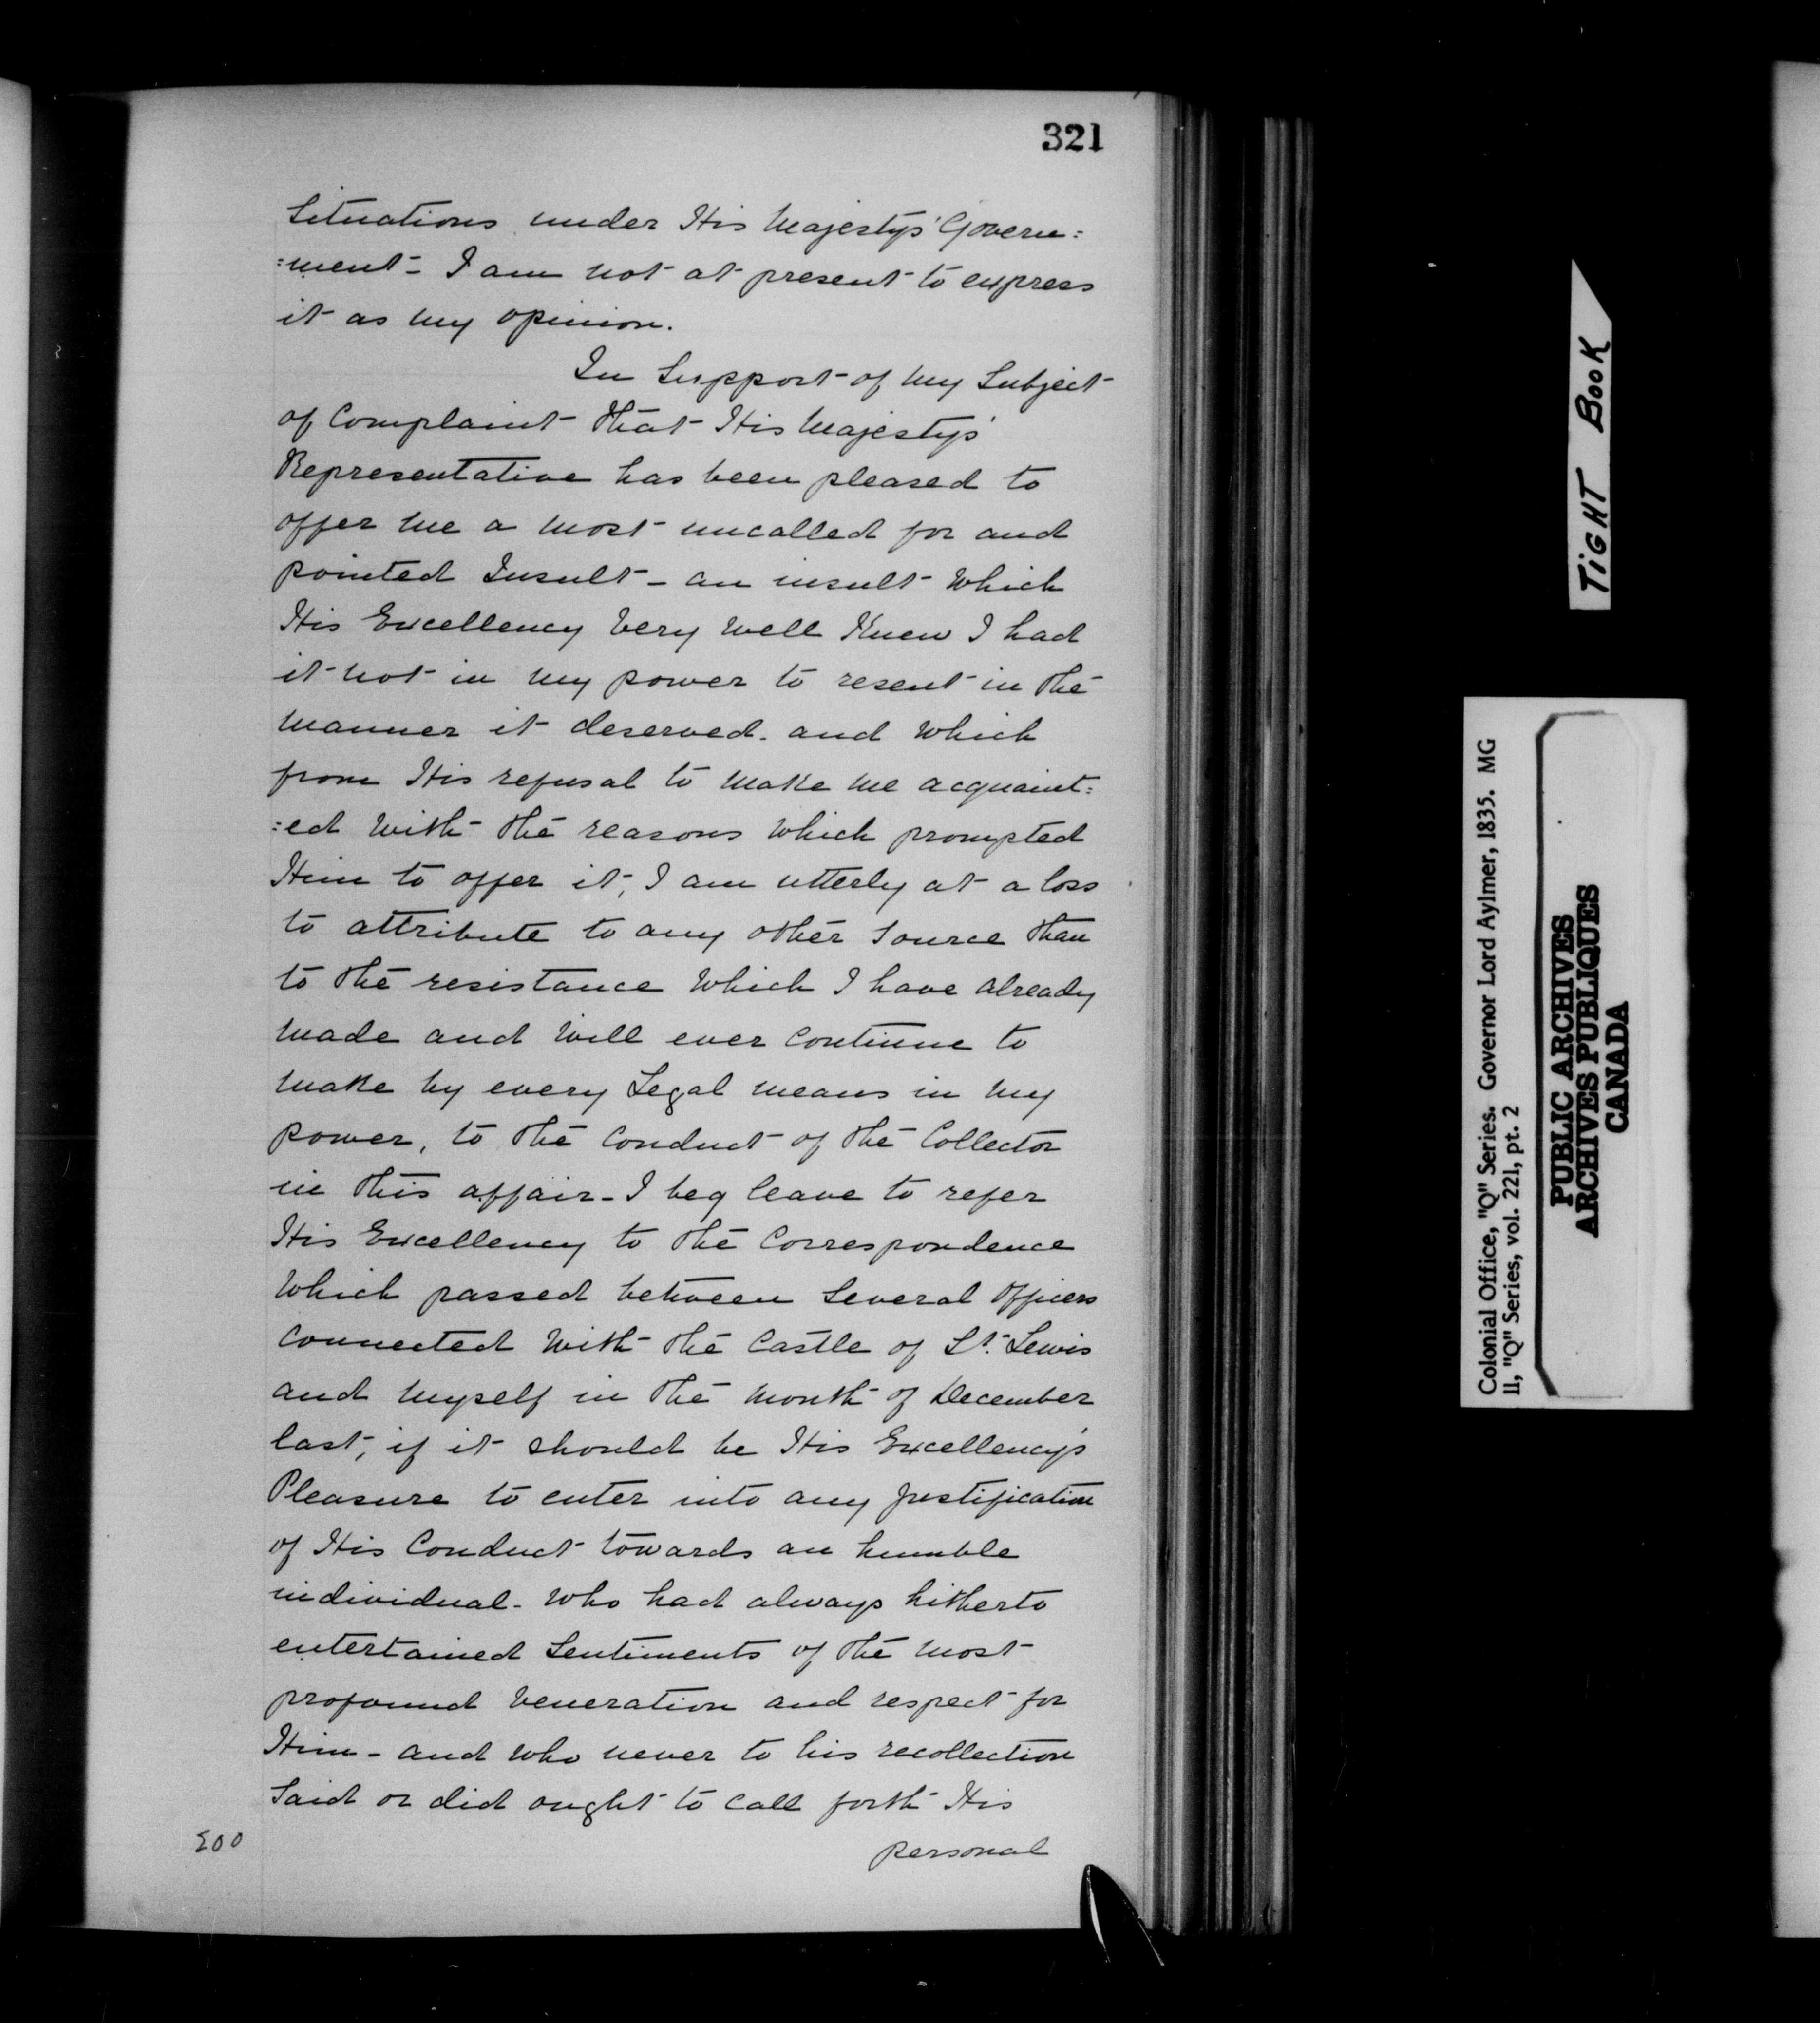 321
Situations under His Majesty's Govern:
:ment - I am not at present to express
it as my opinion.
In Support of my Subject
of Complaint that His Majesty's
Representative has been pleased to
offer me a most uncalled for and
pointed Insult - an insult which
His Excellency Very Well Knew I had
it not in my power to resent in the
manner it deserved. and which
from His refusal to make me acquaint:
:ed with the reasons which prompted
Him to offer it, I am utterly at a loss
to attribute to any other Source than
to the resistance which I have already
made and will ever continue to
make by every Legal means in my
power, to the Conduct of the Collector
in this affair - I beg leave to refer
His Excellency to the Correspondence
which passed between Several Officers
connected with the Castle of St. Lewis
and myself in the month of December
last, if it should be His Excellency's
Pleasure to enter into any justification
of His Conduct towards an humble
individual - who had always hitherto
entertained Sentiments of the most
profound Veneration and respect for
Him - and who never to his recollection
Said or did ought to call forth His
personal
200
TIGHT BOOK
Colonial Office, "Q" Series. Governor Lord Aylmer, 1835. MG
11, "Q" Series, vol. 221, pt. 2
PUBLIC ARCHIVES
ARCHIVES PUBLIQUES
CANADA